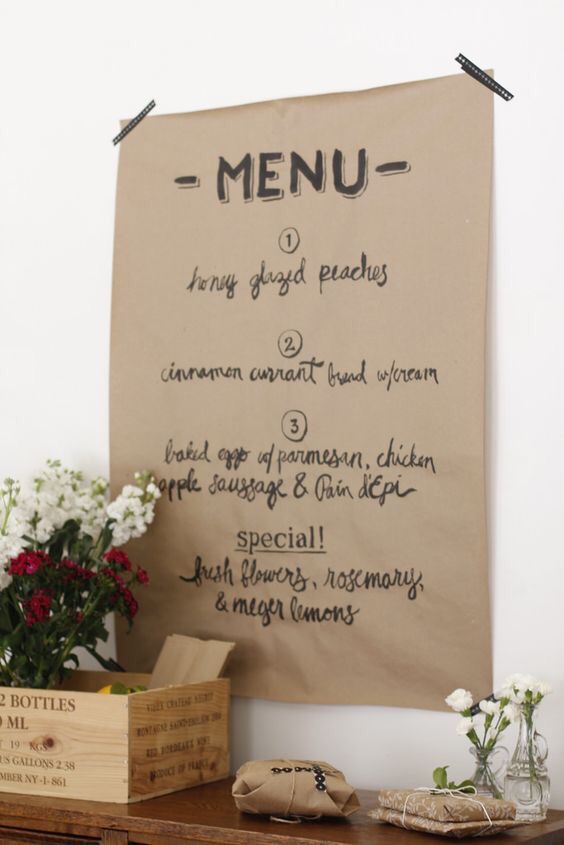 - MENU -
1
honey glazed peaches
2
cinnamon currant bread w/cream
3
baked eggs w/parmesan, chicken
apple saussage & Pain d'Epi
special!
fresh flowers, rosemary,
& meyer lemons
2 BOTTLES
0 ML
T 19 KGS
US GALLONS 2.38
MBER NY-I-861
VIEUX CHATEAU NEGRIT
MONTAGNE SAINT-EMILION
RED BORDEAUX WINE
PRODUCE OF FRANCE